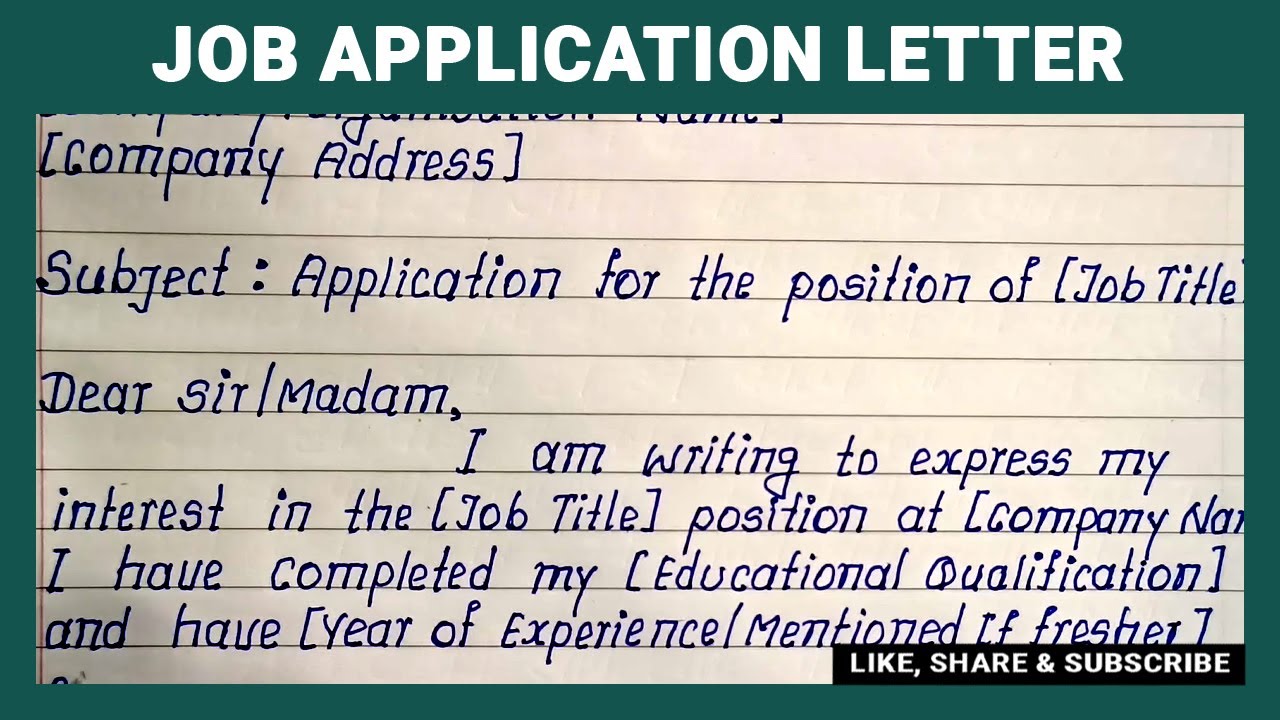 JOB APPLICATION LETTER
Name]
[Company Address]
Subject : Application for the position of [Job Title]
Dear Sir/Madam,
I am writing to express my
interest in the [Job Title] position at [Company
I have completed my [Educational Qualification]
and have [Year of Experience/Mentioned If fresher]
LIKE, SHARE & SUBSCRIBE